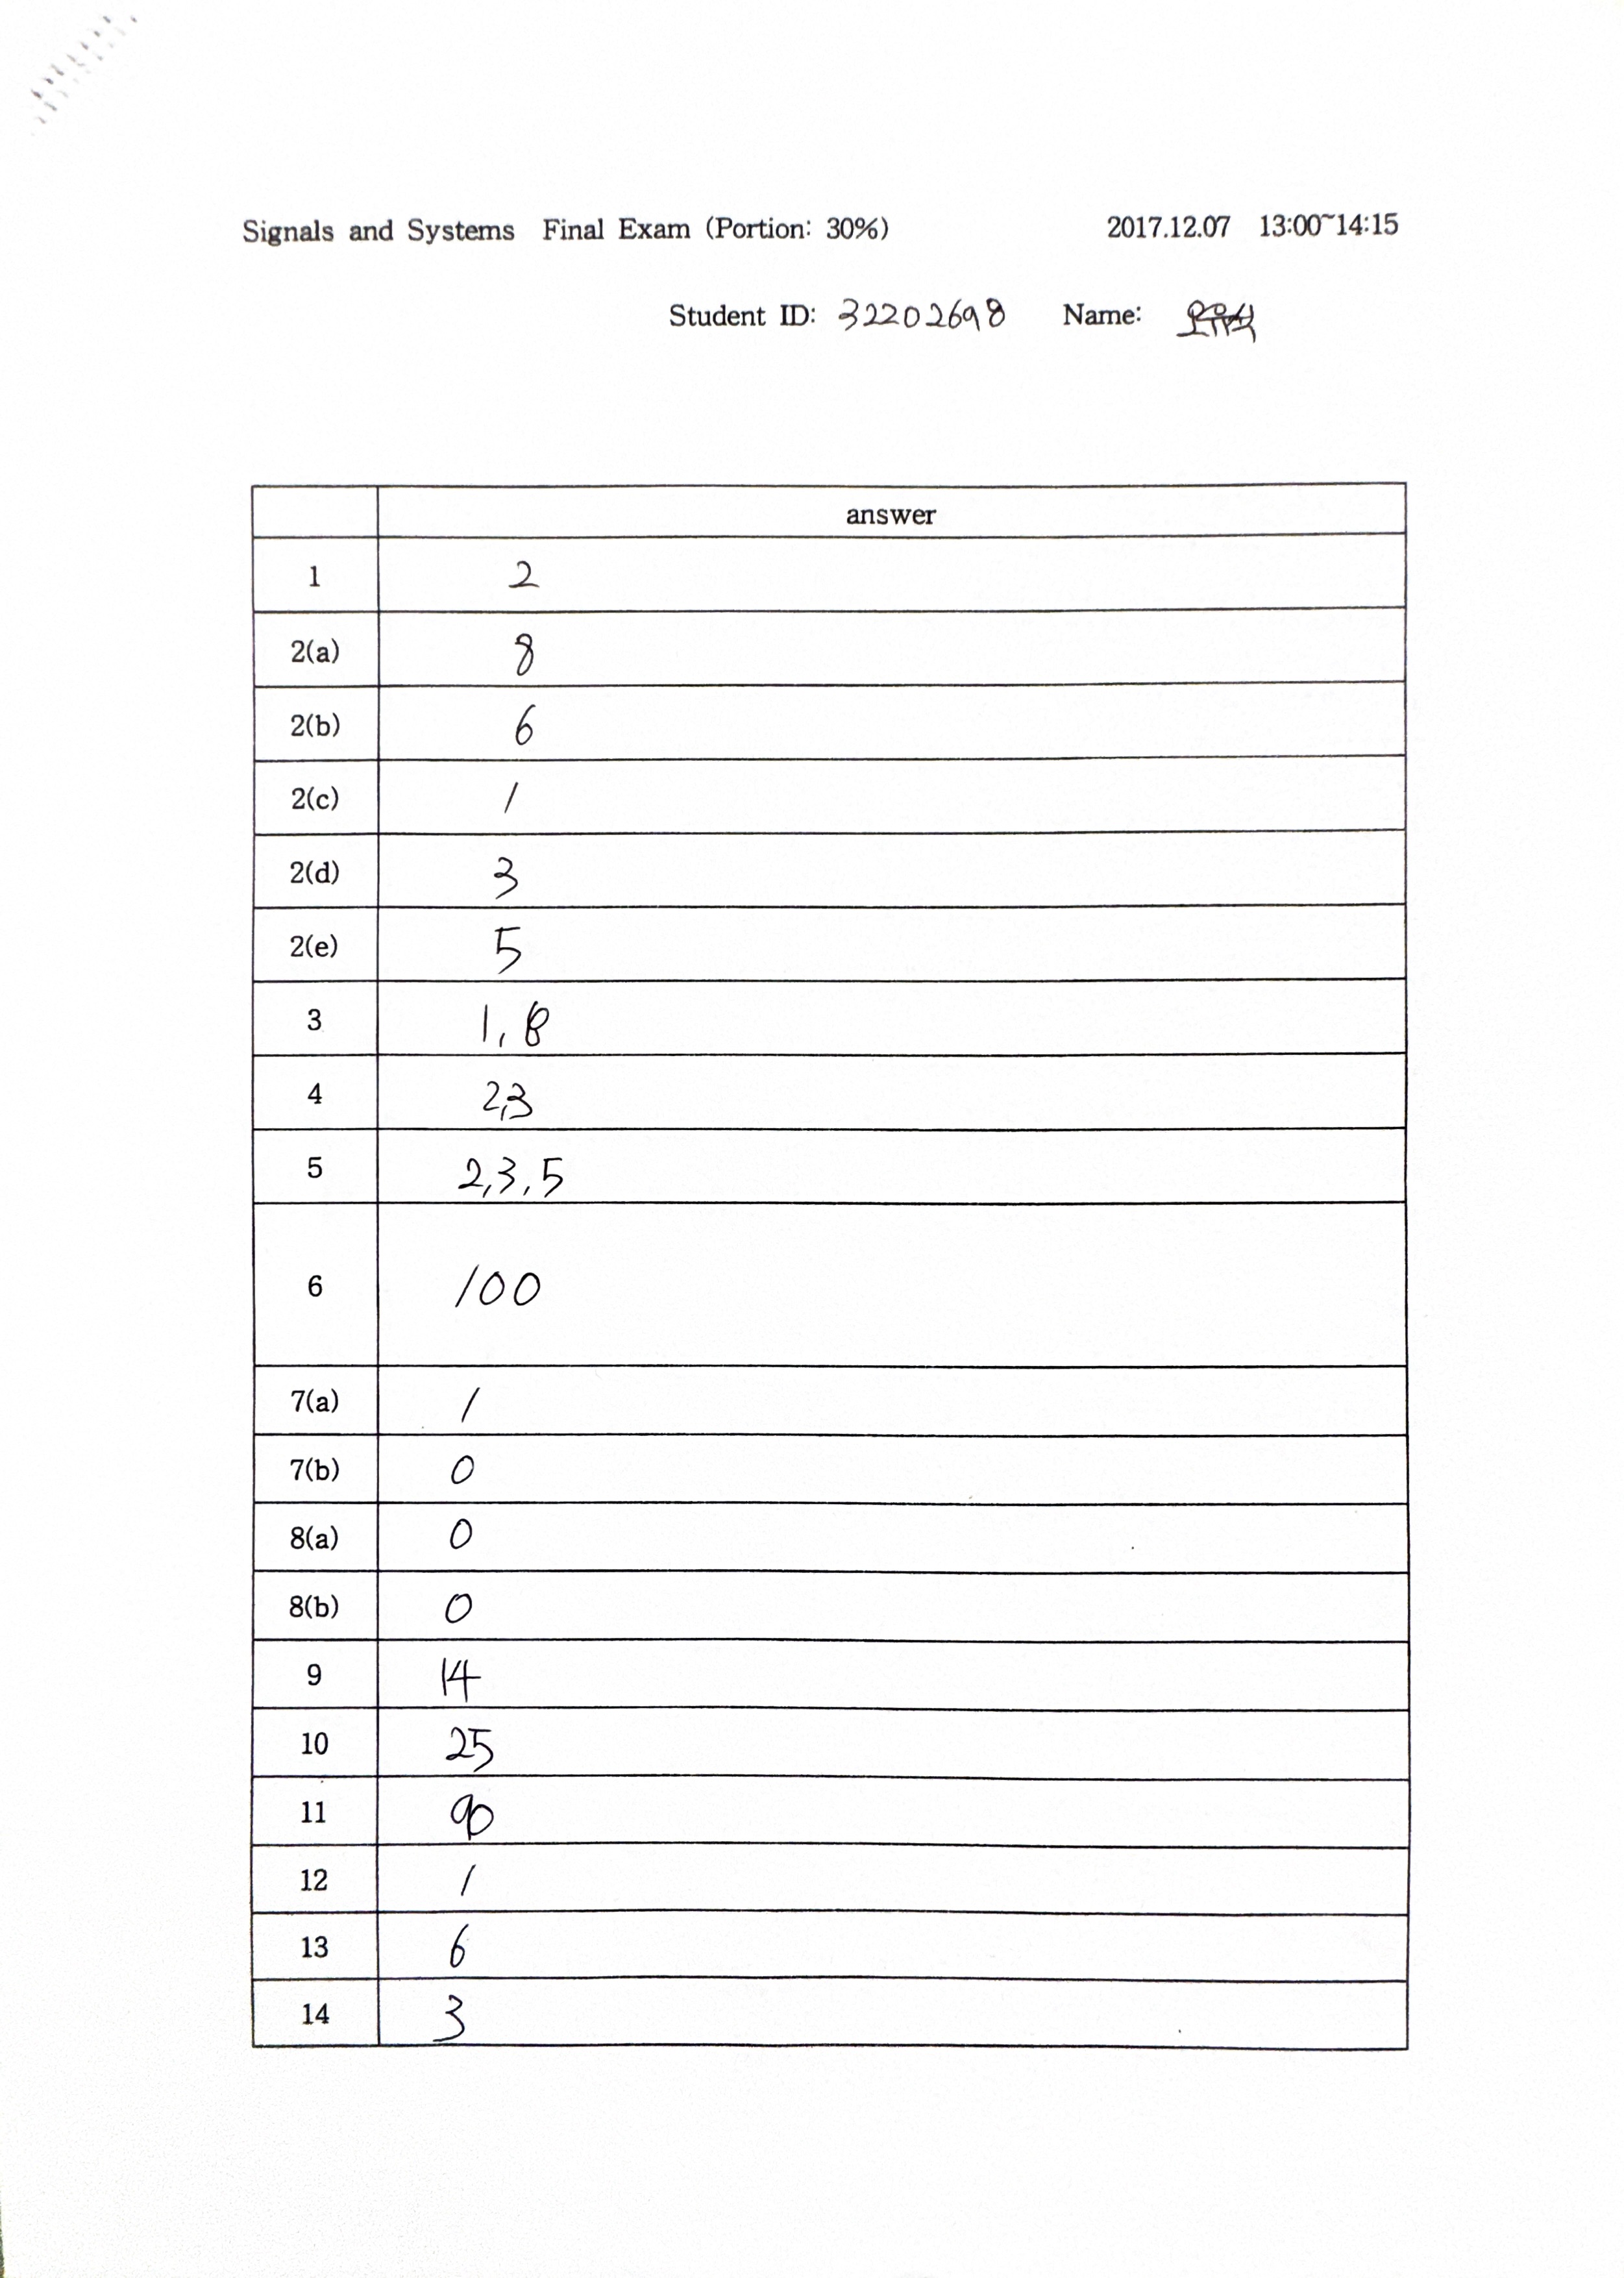 Signals and Systems Final Exam (Portion: 30%) 2017.12.07 13:00~14:15
Student ID: 32202698 Name:
answer
1 2
2(a) 8
2(b) 6
2(c) 1
2(d) 3
2(e) 5
3 1, 8
4 2,3
5 2,3,5
6 100
7(a) 1
7(b) 0
8(a) 0
8(b) 0
9 14
10 25
11 90
12 1
13 6
14 3